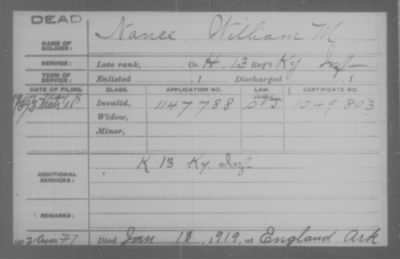 DEAD
NAME OF SOLDIER: Nance, William M
SERVICE: Late rank, Co. H, 13 Reg't Ky Inf
TERM OF SERVICE: Enlisted , 1 Discharged , 1
DATE OF FILING. CLASS. APPLICATION NO. LAW. CERTIFICATE NO.
Invalid, 1147788 1049803
Widow,
Minor,
ADDITIONAL SERVICES: K 13 Ky Inf
REMARKS:
Died Jan 18, 1919, at England Ark